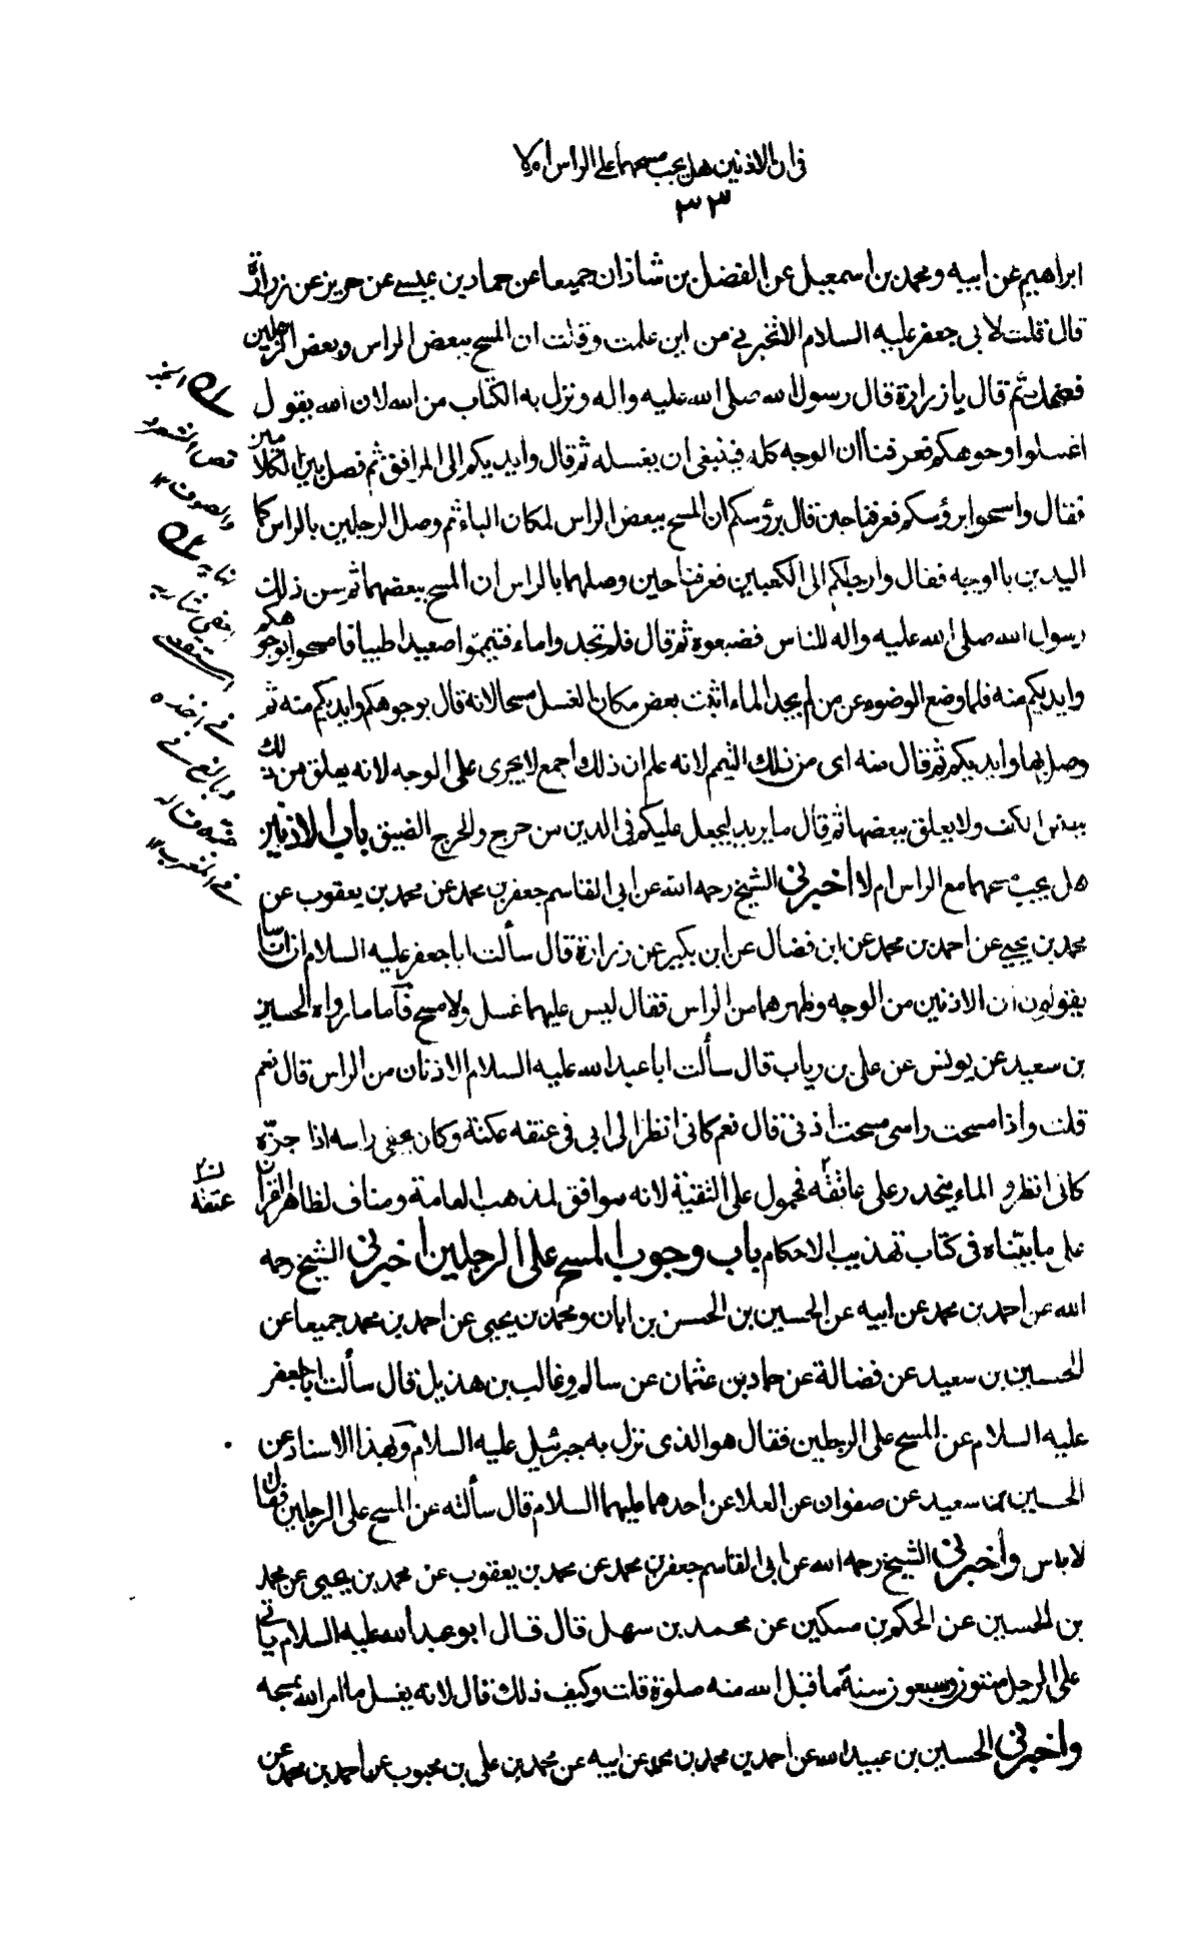 فى ان الاذنين هل يجب مسحهما على الراس ام لا
٣٣
ابراهيم عن ابيه ومحمد بن اسمعيل عن الفضل بن شاذان جميعا عن حماد بن عيسى عن حريز عن زرارة
قال قلت لابى جعفر عليه السلام الا تخبرنى من اين علمت وقلت ان المسح ببعض الراس وبعض الرجلين
فضحك ثم قال يا زرارة قال رسول الله صلى الله عليه واله ونزل به الكتاب من الله لان الله يقول
اغسلوا وجوهكم فعرفنا ان الوجه كله فينبغى ان يغسله ثم قال وايديكم الى المرافق ثم فصل بين الكلامين
فقال وامسحوا برؤسكم فعرفنا حين قال برؤسكم ان المسح ببعض الراس لمكان الباء ثم وصل الرجلين بالراس كما
اليدين بالوجه فقال وارجلكم الى الكعبين فعرفنا حين وصلهما بالراس ان المسح ببعضهما ثم سن ذلك
رسول الله صلى الله عليه واله للناس فضيعوه ثم قال فلم تجدوا ماء فتيمموا صعيدا طيبا فامسحوا بوجوهكم
وايديكم منه فلما وضع الوضوء عن من لم يجد الماء اثبت بعض مكان الغسل مسحا لانه قال بوجوهكم وايديكم منه ثم
وصل بها وايديكم ثم قال منه اى من ذلك التيمم لانه علم ان ذلك اجمع لا يجرى على الوجه لانه يعلق من ذلك
ببعض الكف ولا يعلق ببعضها ثم قال ما يريد ليجعل عليكم فى الدين من حرج والحرج الضيق باب الاذنين
هل يجب مسحهما مع الراس ام لا اخبرنى الشيخ رحمه الله عن ابى القاسم جعفر بن محمد عن محمد بن يعقوب عن
محمد بن يحيى عن احمد بن محمد عن ابن فضال عن ابن بكير عن زرارة قال سألت ابا جعفر عليه السلام ان اناسا
يقولون ان الاذنين من الوجه وظهرهما من الراس فقال ليس عليهما غسل ولا مسح فاما ما رواه الحسين
بن سعيد عن يونس عن على بن رياب قال سألت ابا عبد الله عليه السلام الاذنان من الراس قال نعم
قلت واذا مسحت راسى مسحت اذنى قال نعم كانى انظر الى ابى فى عنقه عكنة وكان يحفى راسه اذا جزه
كانى انظر و الماء ينحدر على عاتقه فمحمول على التقية لانه موافق لمذهب العامة ومناف لظاهر القران
على ما بيناه فى كتاب تهذيب الاحكام باب وجوب المسح على الرجلين اخبرنى الشيخ رحمه
الله عن احمد بن محمد عن ابيه عن الحسين بن الحسن بن ابان ومحمد بن يحيى عن احمد بن محمد جميعا عن
الحسين بن سعيد عن فضالة عن حماد بن عثمان عن سالم وغالب بن هذيل قال سألت ابا جعفر
عليه السلام عن المسح على الرجلين فقال هو الذى نزل به جبرئيل عليه السلام وبهذا الاسناد عن
الحسين بن سعيد عن صفوان عن العلا عن احدهما عليهما السلام قال سألته عن المسح على الرجلين فقال
لا باس واخبرنى الشيخ رحمه الله عن ابى القاسم جعفر بن محمد عن محمد بن يعقوب عن محمد بن يحيى عن محمد
بن الحسين عن الحكم بن مسكين عن محمد بن سهل قال قال ابو عبد الله عليه السلام ياتى
على الرجل ستون وسبعون سنة ما قبل الله منه صلوة قلت وكيف ذلك قال لانه يغسل ما امر الله بمسحه
واخبرنى الحسين بن عبيد الله عن احمد بن محمد بن محمد عن ابيه عن محمد بن على بن محبوب عن احمد بن محمد عن
قص الشعر و
والصوف ١٢
نهايه
احفى شاربه
فى اخذه
وبالغ فى
قاله
فى المغرب ١٢
عنقه